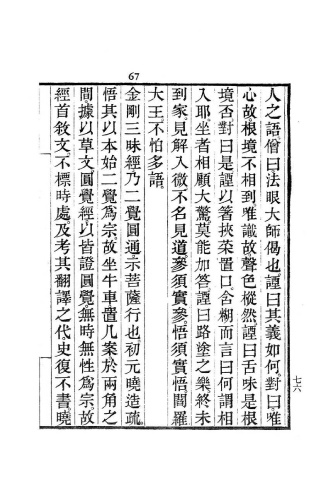 67
人之語僧曰法眼大師偈也諲曰其義如何對曰唯
心故根境不相到唯識故聲色樅然諲曰舌味是根
境否對曰是諲以箸挾菜置口含糊而言曰何謂相
入耶坐者相顧大驚莫能加答諲曰路塗之樂終未
到家見解入微不名見道參須實參悟須實悟閻羅
大王不怕多語
金剛三昧經乃二覺圓通示菩薩行也初元曉造疏
悟其以本始二覺爲宗故坐牛車置几案於兩角之
間據以草文圓覺經以皆證圓覺無時無性爲宗故
經首敘文不標時處及考其翻譯之代史復不書曉
七六